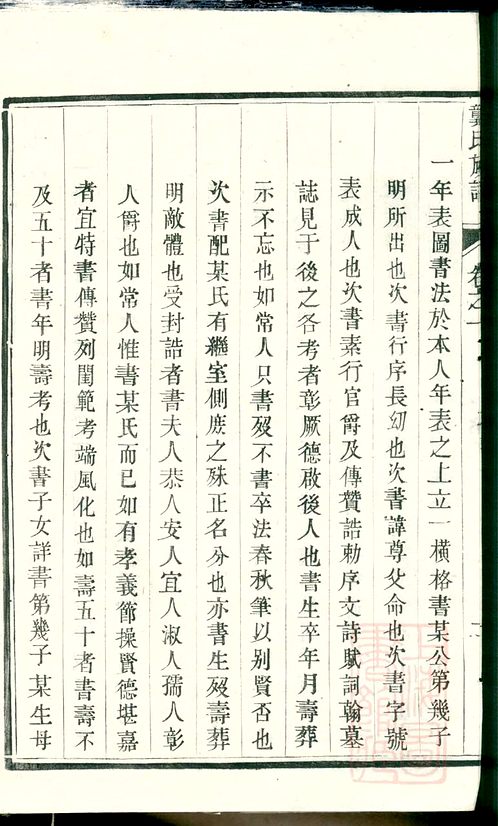 龔氏族譜 卷之一
一年表圖書法於本人年表之上立一橫格書某公第幾子
明所出也次書行序長幼也次書諱尊父命也次書字號
表成人也次書素行官爵及傳贊誥勅序文詩賦詞翰墓
誌見于後之各考者彰厥德啟後人也書生卒年月壽葬
示不忘也如常人只書歿不書卒法春秋筆以别賢否也
次書配某氏有繼室側庶之殊正名分也亦書生歿壽葬
明敵體也受封誥者書夫人恭人安人宜人淑人孺人彰
人爵也如常人惟書某氏而已如有孝義節操賢德堪嘉
者宜特書傳贊列閨範考端風化也如壽五十者書壽不
及五十者書年明壽考也次書子女詳書第幾子某生母